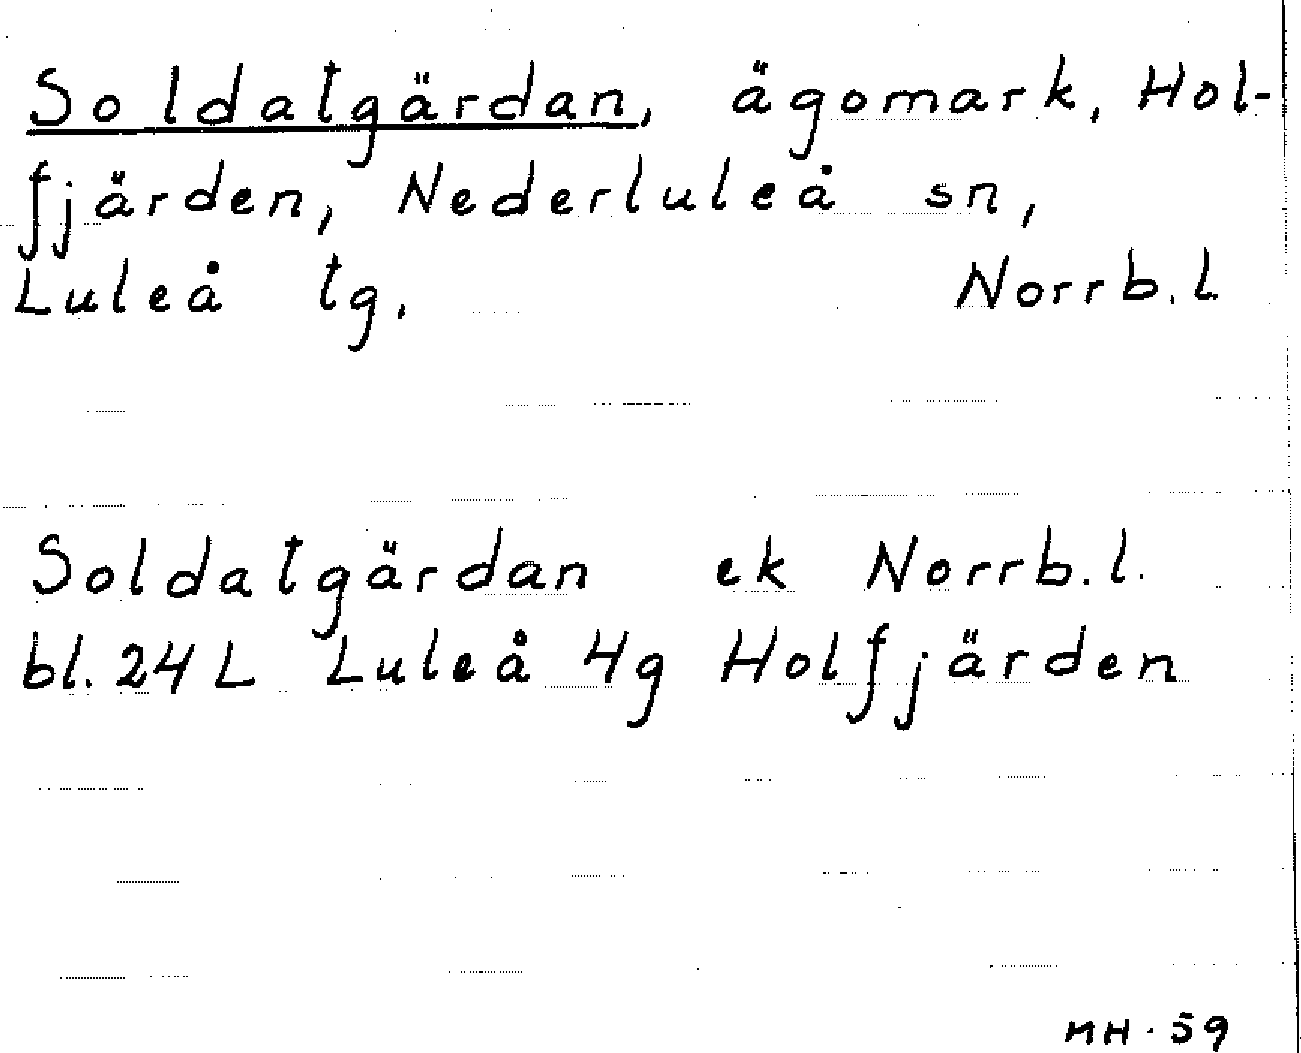 Soldatgärdan, ägomark, Hol-
fjärden, Nederluleå sn,
Luleå tg. Norrb.l.
Soldatgärdan ek Norrb.l.
bl. 24 L Luleå 4g Holfjärden
MH. 59